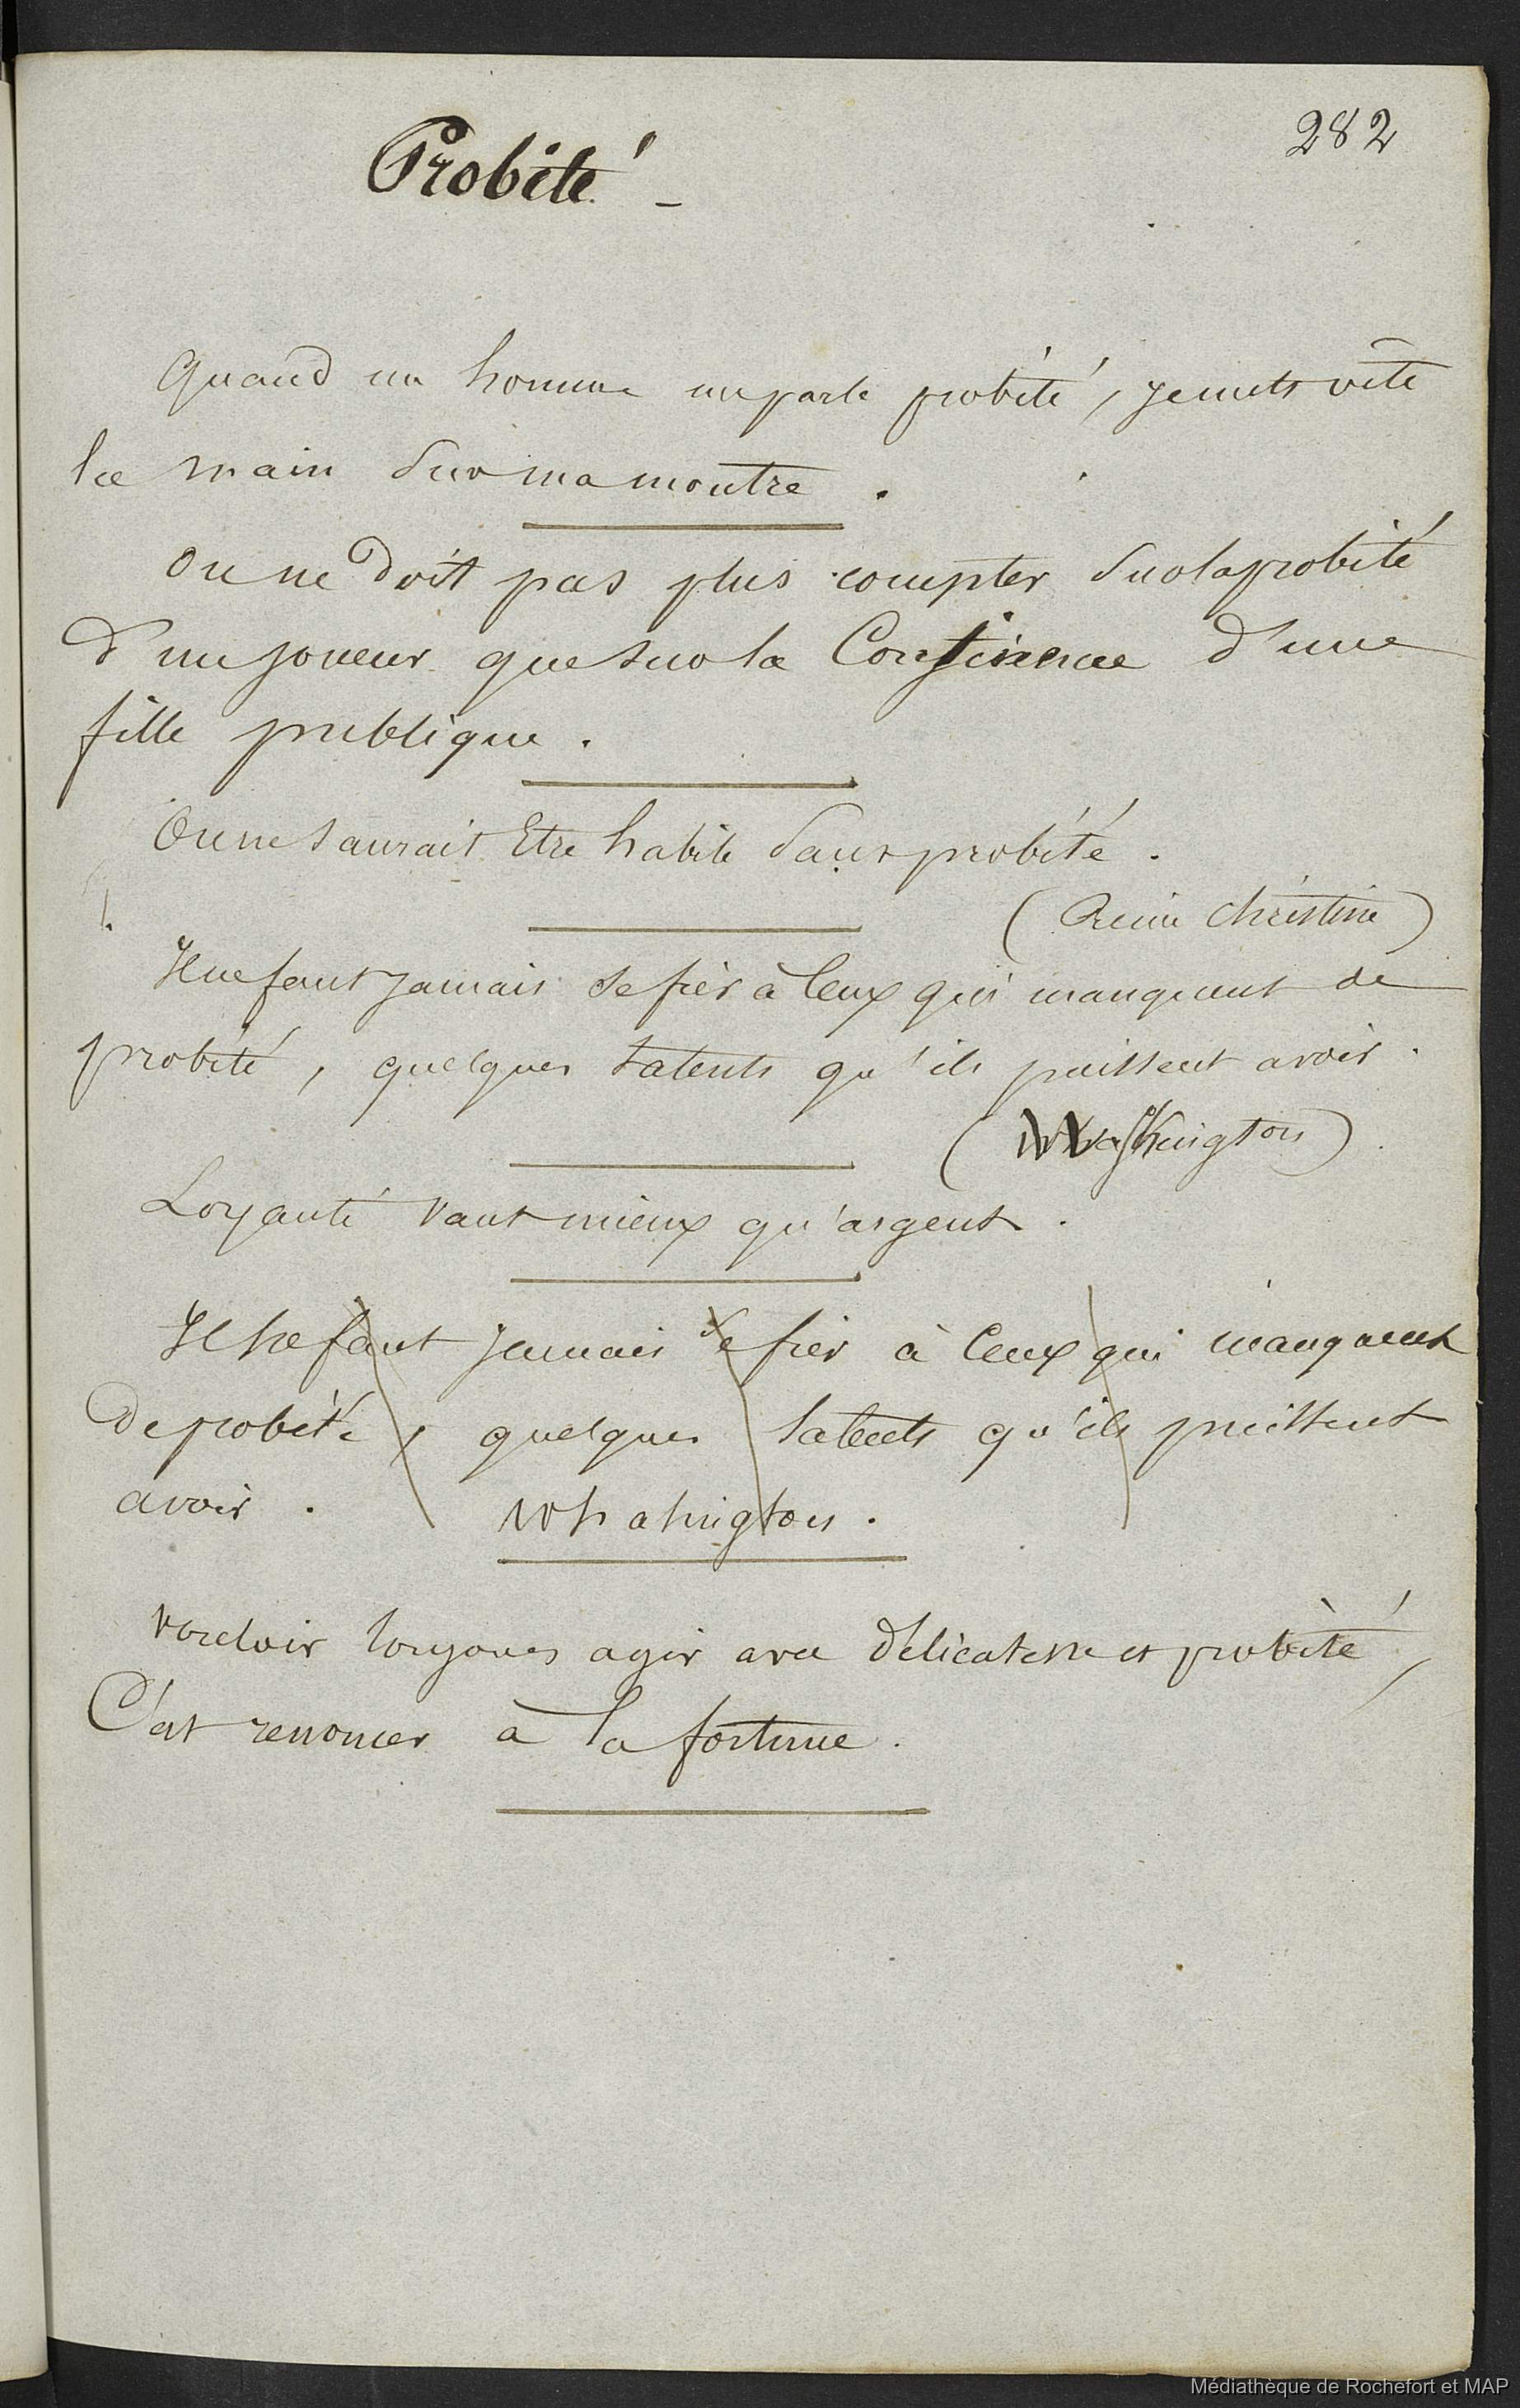 282
Probité -
Quand un homme me parle probité, je mets vîte
la main sur ma montre.
On ne doit pas plus compter sur la probité
d'un joueur que sur la Continence d'une
fille publique.
On ne saurait Etre habile sans probité.
(Reine Christine)
Il ne faut jamais se fier à Ceux qui manquent de
probité, quelques talents qu'ils puissent avoir.
(Washington)
Loyauté vaut mieux qu'argent.
Il ne faut jamais se fier à Ceux qui manquent
de probité, quelques talents qu'ils puissent
avoir. Whahington.
Vouloir toujours agir avec délicatesse et probité,
C'est renoncer à la fortune.
Médiathèque de Rochefort et MAP